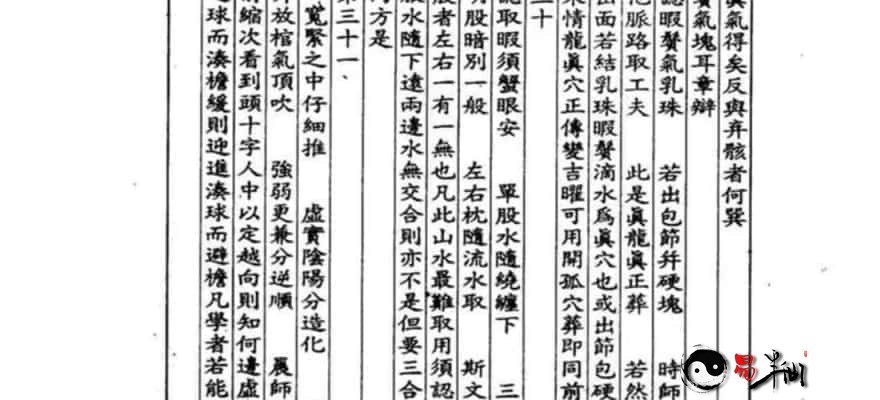 眞氣得矣反與弃骸者何㢲
賢氣塊耳章辯
認瑕鬚氣乳珠 若出包節幷硬塊 時師
他脈路取工夫 此是眞龍眞正葬 若然
出面若結乳珠瑕鬚滴水爲眞穴也或出節包硬
來情龍眞穴正傳變吉曜可用開孤穴葬即同前
二十
取瑕須蟹眼安 單股水隨繞纏下 三
股暗別一般 左右枕隨流水取 斯文
般者左右一有一無也凡此山水最難取用須認
股水隨下遶兩邊水無交合則亦不是但要三合
方是
第三十一、
寬緊之中仔細推 虛實陰陽分造化
放棺氣頂吹 強弱更兼分逆順 晨師
縮次看到頭十字人中以定越向則知何邊虛
球而湊檐緩則迎進湊球而避檐凡學者若能
易半仙